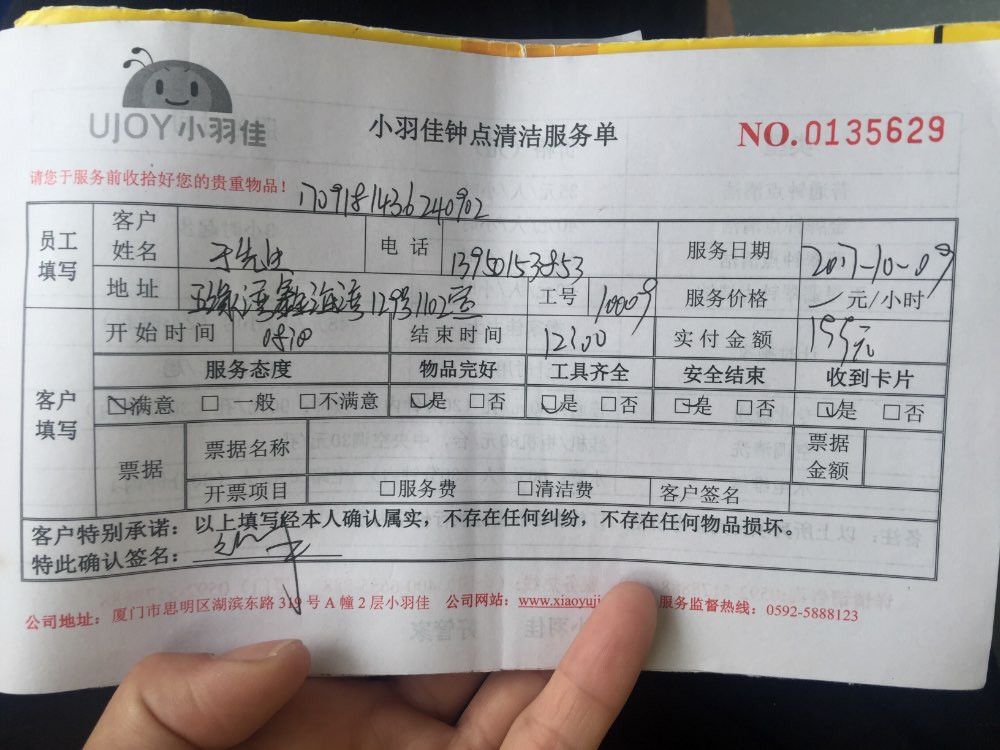 UJOY小羽佳
小羽佳钟点清洁服务单
NO.0135629
请您于服务前收拾好您的贵重物品！
1709181436240902
员工填写 客户姓名 于先生 电话 13950153853 服务日期 2017-10-09
地址 海湾12号1102室 工号 10009 服务价格 元/小时
开始时间 结束时间 12:00 实付金额 155元
客户填写 服务态度 物品完好 工具齐全 安全结束 收到卡片
满意 □ 一般 □不满意 是 □否 是 □否 是 □否 是 □否
票据 票据名称 票据金额
开票项目 □服务费 □清洁费 客户签名
客户特别承诺：以上填写经本人确认属实，不存在任何纠纷，不存在任何物品损坏。
特此确认签名：
公司地址：厦门市思明区湖滨东路319号A幢2层小羽佳 公司网站：www.xiaoyuji 服务监督热线：0592-5888123